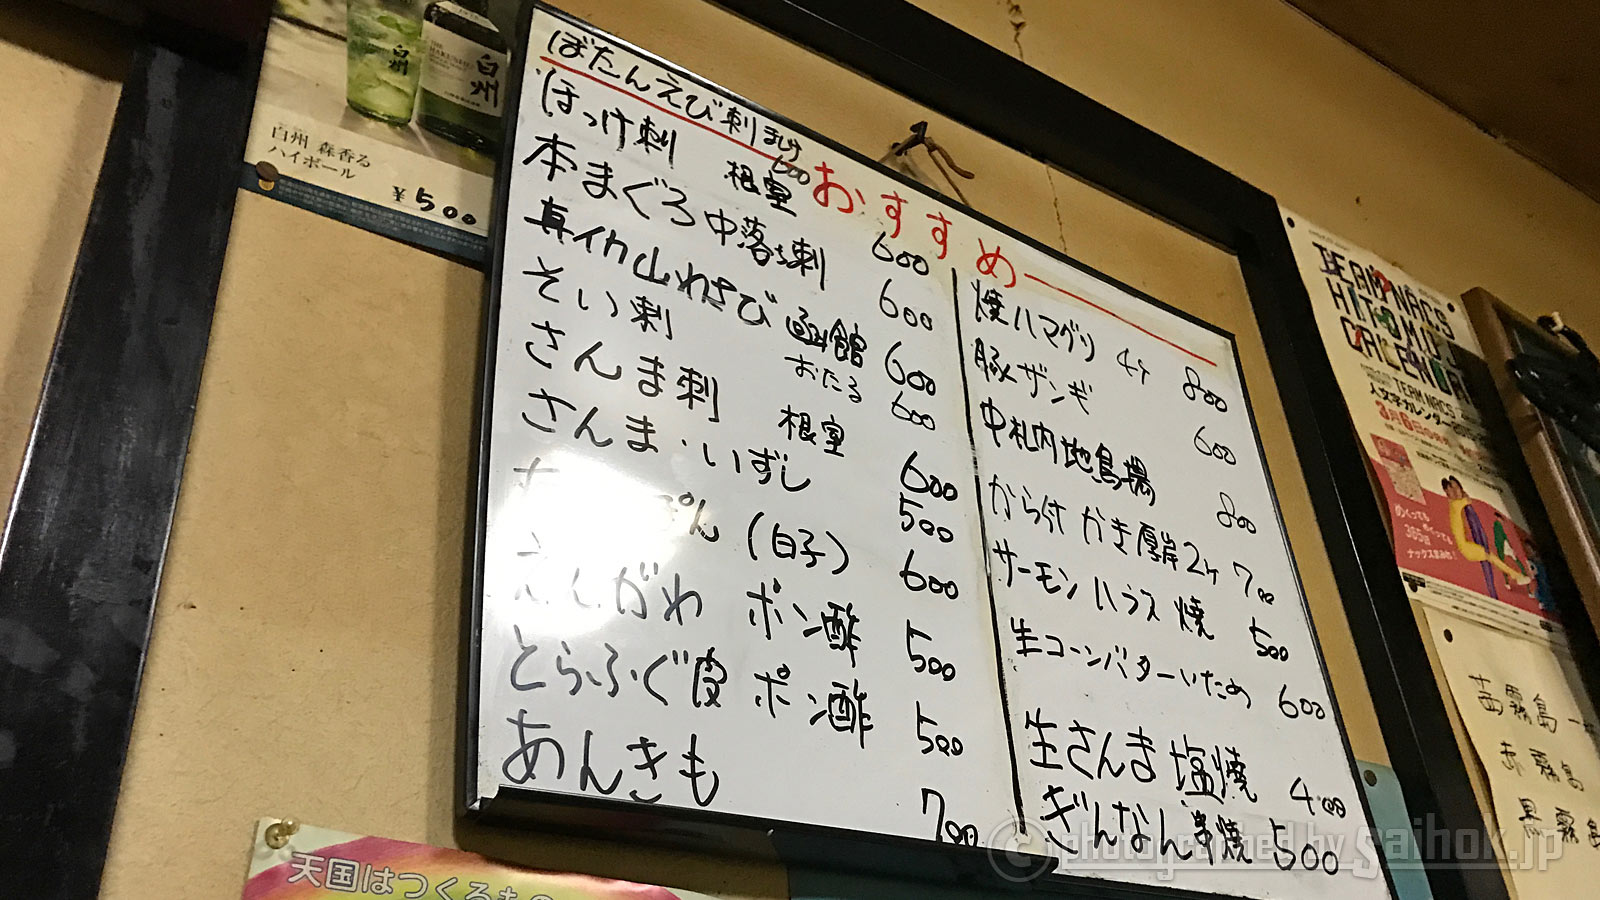 白州
白州
白州 森香る
ハイボール
¥500
ぼたんえび刺 ましけ
おすすめ
ほっけ刺 根室 600
本まぐろ中落ち刺 600
真イカ山わさび 函館 600
そい刺 おたる 600
さんま刺 根室 600
さんま・いずし 500
ぽん (白子) 600
えんがわ ポン酢 500
とらふぐ皮 ポン酢 500
あんきも 700
焼ハマグリ 4ケ 800
豚ザンギ 600
中札内地鳥揚 800
から付 かき 厚岸 2ケ 700
サーモンハラス焼 500
生コーンバターいため 600
生さんま 塩焼 400
ぎんなん串焼 500
TEAM NACS
TEAM NACS
人文字カレンダー
3月6日
めくっても
めくっても
365日
霧島
赤霧島
黒霧島
天国はつくるもの
© photographed by saihok.jp